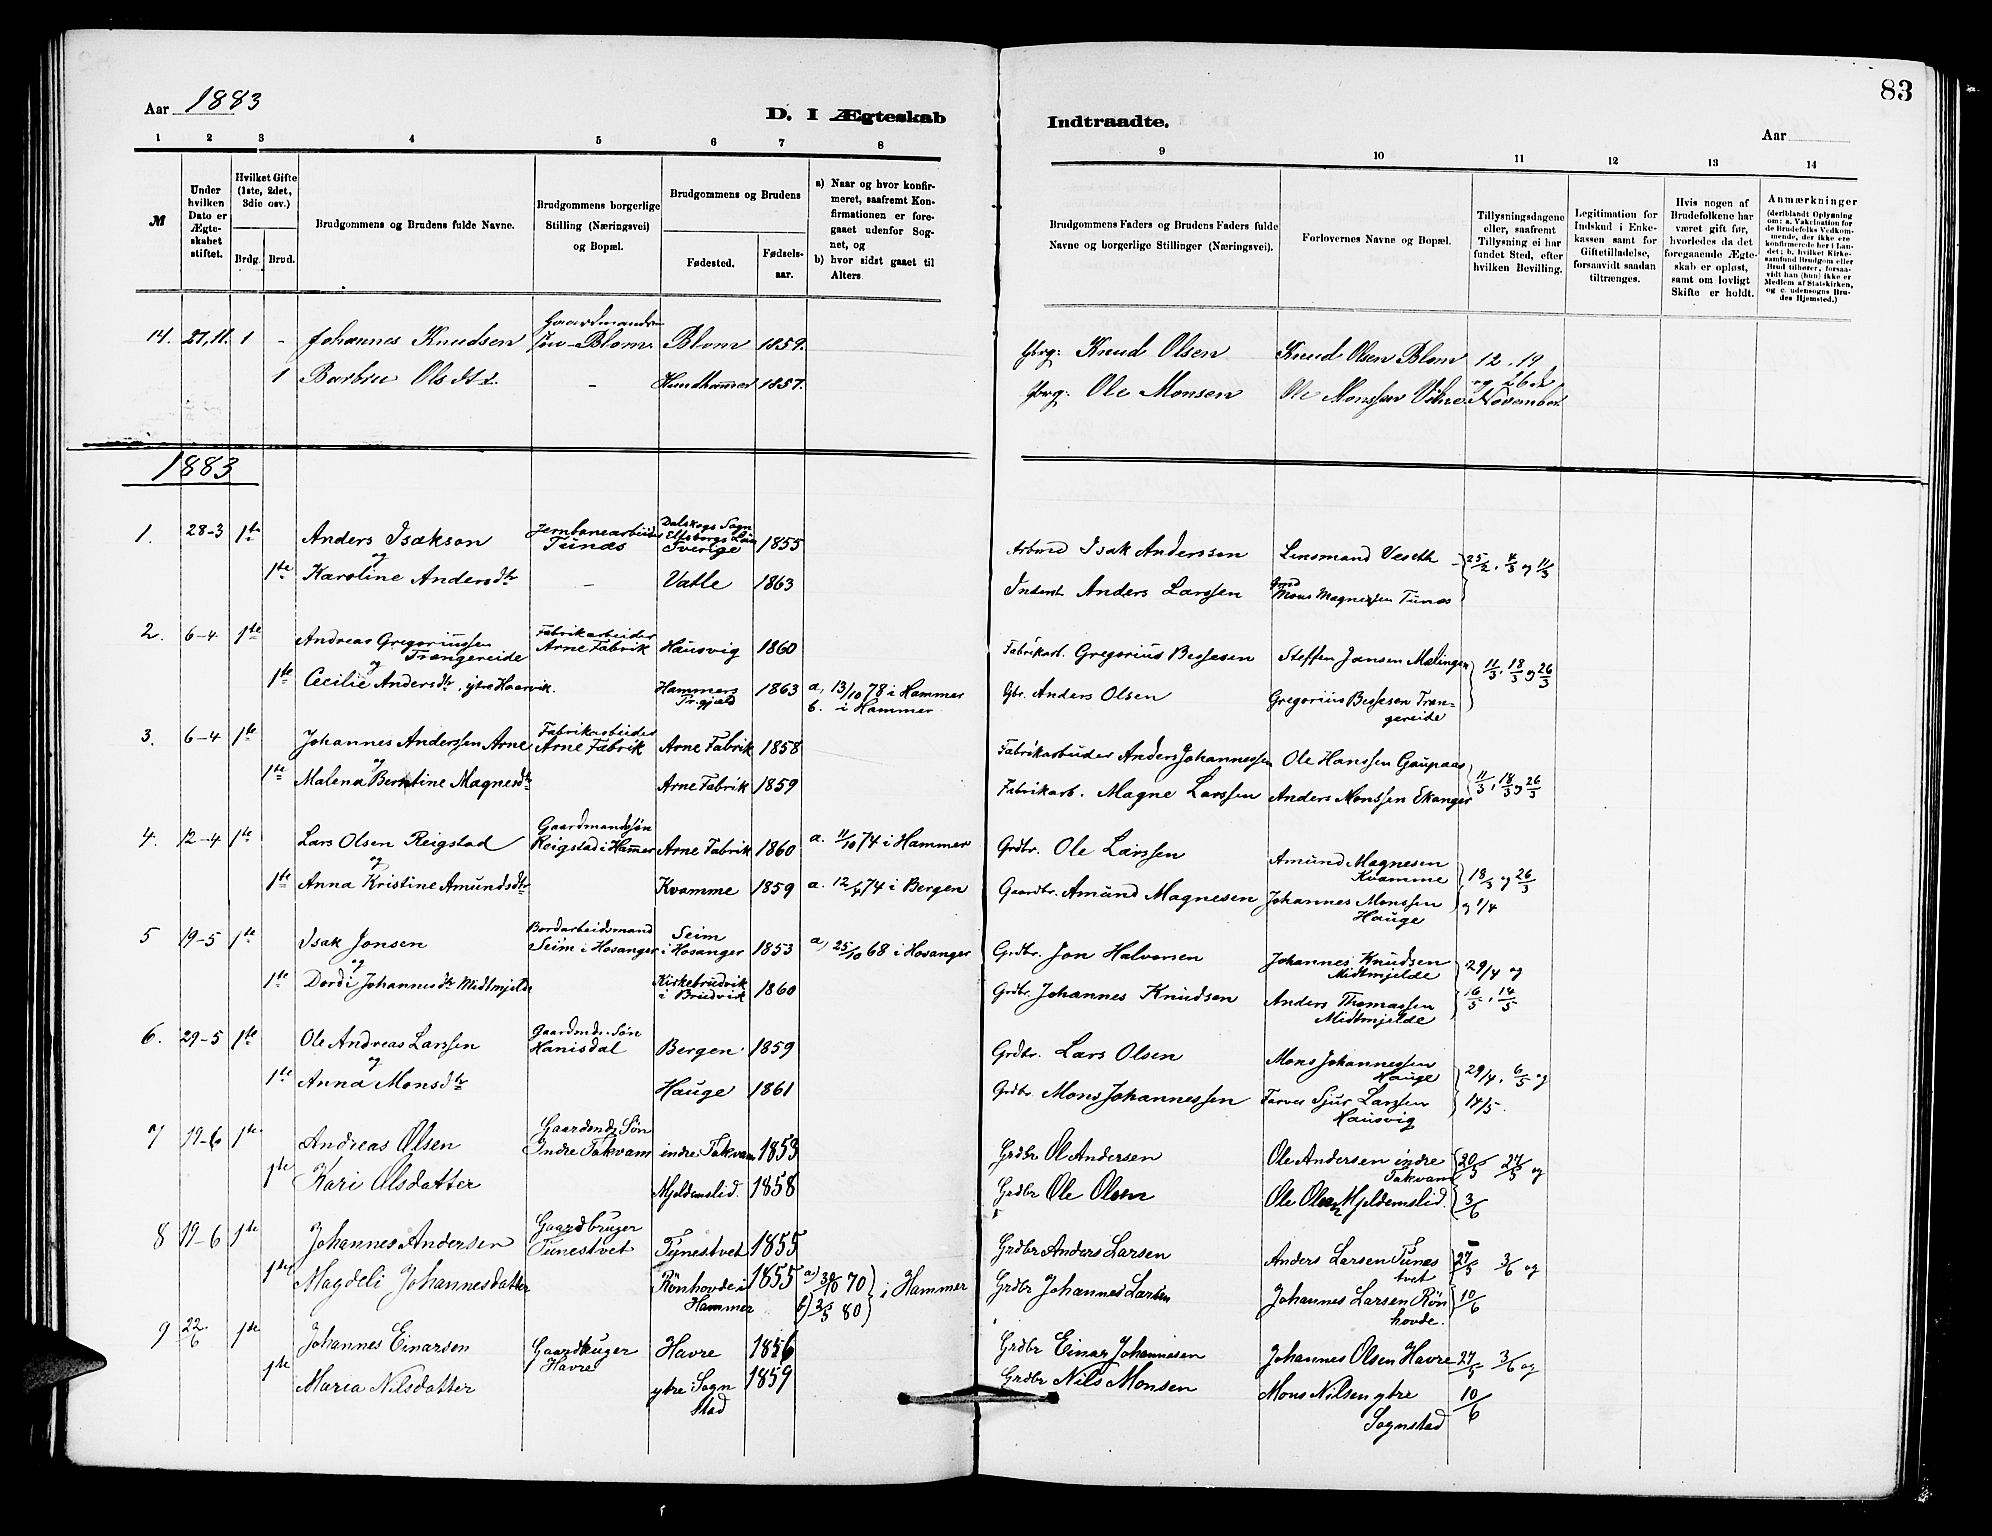 83
Aar 1883
D. I Ægteskab Indtraadte.
Aar
1 2 3 4 5 6 7 8 9 10 11 12 13 14
M
Under hvilken Dato er Ægteskabet stiftet.
Hvilket Gifte (1ste, 2det, 3die osv.)
Brdg. Brud.
Brudgommens og Brudens fulde Navne.
Brudgommens borgerlige Stilling (Næringsvei) og Bopæl.
Brudgommens og Brudens
Fødested. Fødselsaar.
a) Naar og hvor konfirmeret, saafremt Konfirmationen er foregaaet udenfor Sognet, og
b) hvor sidst gaaet til Alters.
Brudgommens Faders og Brudens Faders fulde Navne og borgerlige Stillinger (Næringsvei).
Forlovernes Navne og Bopæl.
Tillysningsdagene eller, saafremt Tillysning ei har fundet Sted, efter hvilken Bevilling.
Legitimation for Indskud i Enkekassen samt for Giftetilladelse, forsaavidt saadan tiltrænges.
Hvis nogen af Brudefolkene har været gift før, hvorledes da det foregaaende Ægteskab er opløst, samt om lovligt Skifte er holdt.
Anmærkninger
(deriblandt Oplysning om: a. Vakcination for de Brudefolks Vedkommende, der ikke ere konfirmerede her i Landet; b. hvilket Kirkesamfund Brudgom eller Brud tilhører, forsaavidt han (hun) ikke er Medlem af Statskirken, og c. udensogns Brudes Hjemsted.)
14. 27.11. 1 - Johannes Knudsen Gaardmandssøn Blom. Blom 1859. Gbrg: Knud Olsen Knud Olsen Blom 12, 19
1 Barbra Olsdtr. - Hundhammer 1857. Gbrg: Ole Monsen Ole Monssen og 26de November
1883
1. 28-3 1ste Anders Isakson Jernbanearbeider Tunæs Dalskogs Sogn Elfsborgs Län Sverige 1855 Arbmd Isak Andersson Lensmand Veseth 25/2, 4/3 og 11/3
og
1ste Karoline Andersdtr - Vatle 1863 Inderst Anders Larssen Grmd Mons Magnessen Tunæs
2. 6-4 1ste Andreas Gregoriussen Trængereide Fabrikarbeider Arne Fabrik Hausvig 1860 Fabrikarb. Gregorius Bessesen Steffen Jansen Mælingen 11/3, 18/3 og 26/3
og
1ste Cecilie Andersdtr, ytre Haarvik. Hammers Pr.gjæld 1863 a, 13/10 78 i Hammer b. i Hammer Gbr. Anders Olsen Gregorius Bessesen Trængereide
3. 6-4 1ste Johannes Anderssen Arne Fabrikarbeider Arne Fabrik Arne Fabrik 1858 Fabrikarbeider Anders Johannessen Ole Hanssen Gaupaas 11/3, 18/3 og 26/3
og
1ste Malena Berntine Magnesdtr Arne Fabrik 1859 Fabrikarb. Magne Larssen Anders Monssen Ekanger
4. 12-4 1ste Lars Olsen Reigstad Gaardmandssøn Reigstad i Hammer Arne Fabrik 1860 a. 11/10 74 i Hammer Grdbr. Ole Larssen Amund Magnesen Kvamme 18/3 og 26/3
og
1ste Anna Kristine Amundsdtr Kvamme 1859 a. 12/4 74 i Bergen Gaardbr. Amund Magnesen Johannes Monssen Hauge og 1/4
5 19-5 1ste Isak Jonsen Bordarbeidsmand Seim i Hosanger Seim i Hosanger 1853 a, 25/10 68 i Hosanger Grdbr. Jon Halvorsen Johannes Knudsen Midtmjelde 29/4 og
og
1ste Dordi Johannesdtr Midtmjelde Kirkebrudvik i Brudvik 1860 Grdbr. Johannes Knudsen Anders Thomassen Midtmjelde 6/5, 14/5
6. 29-5 1ste Ole Andreas Larssen Gaardmds. Søn Hanisdal Bergen 1859 Grdbr. Lars Olsen Mons Johannessen Hauge 29/4, 6/5 og
og
1ste Anna Monsdtr Hauge 1861 Grdbr. Mons Johannessen Farver Sjur Larssen Hausvig 14/5.
7 19-6 1ste Andreas Olsen Gaardmds Søn Indre Takvam indre Takvam 1853 Grdbr Ol Andersen Ole Andersen indre Takvam 20/5 27/5 og
1ste Kari Olsdatter Mjeldemslid. 1858 Grdbr Ole Olsen Ole Olsen Mjeldemslid. 3/6
8 19-6 1ste Johannes Andersen Gaardbruger Tunestvet Tynestvet 1855 Grdbr Anders Larsen Anders Larsen Tunestvet 27/5 3/6 og
1ste Magdeli Johannesdatter Rönhovde i Hammer 1855 a) 70 b) 2/5 80 i Hammer Grdbr Johannes Larsen Johannes Larsen Rönhovde. 10/6
9 22/6 1ste Johannes Einarsen Gaardbruger Havre Havre 1856 Grdbr Einar Johannesen Johannes Olsen Havre 27/5 3/6 og
1ste Maria Nilsdatter ytre Sognstad 1859 Grdbr Nils Monsen Mons Nilsen ytre Sognstad 10/6